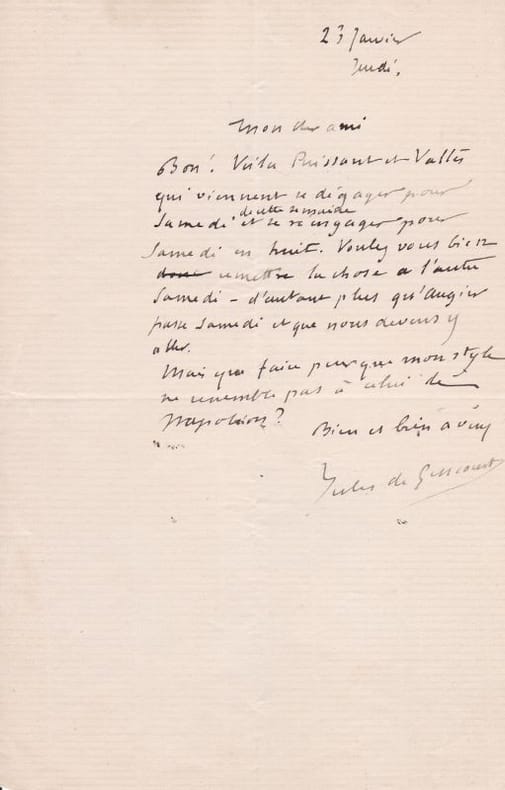 23 Janvier
Jeudi,
Mon cher ami
Bon! Voila Puissant et Vallès
qui viennent se dégager pour
de cette semaine
Samedi et se rengager pour
Samedi en huit. Voulez vous bien
donc remettre la chose a l'autre
Samedi – d'autant plus qu'Augier
passe Samedi et que nous devons y
aller.
Mais que faire pour que mon style
ne ressemble pas à celui de
Napoléon?
Bien et bien à vous
Jules de Goncourt